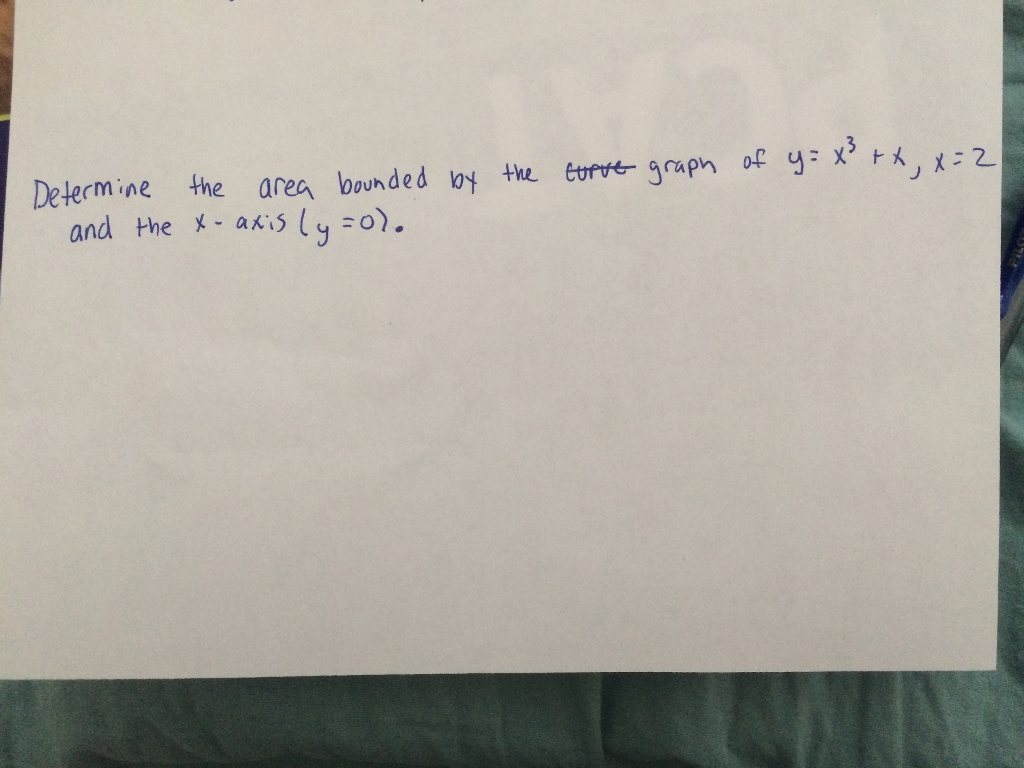 Determine the area bounded by the curve graph of y = x³ + x, x = 2
and the x-axis (y = 0).